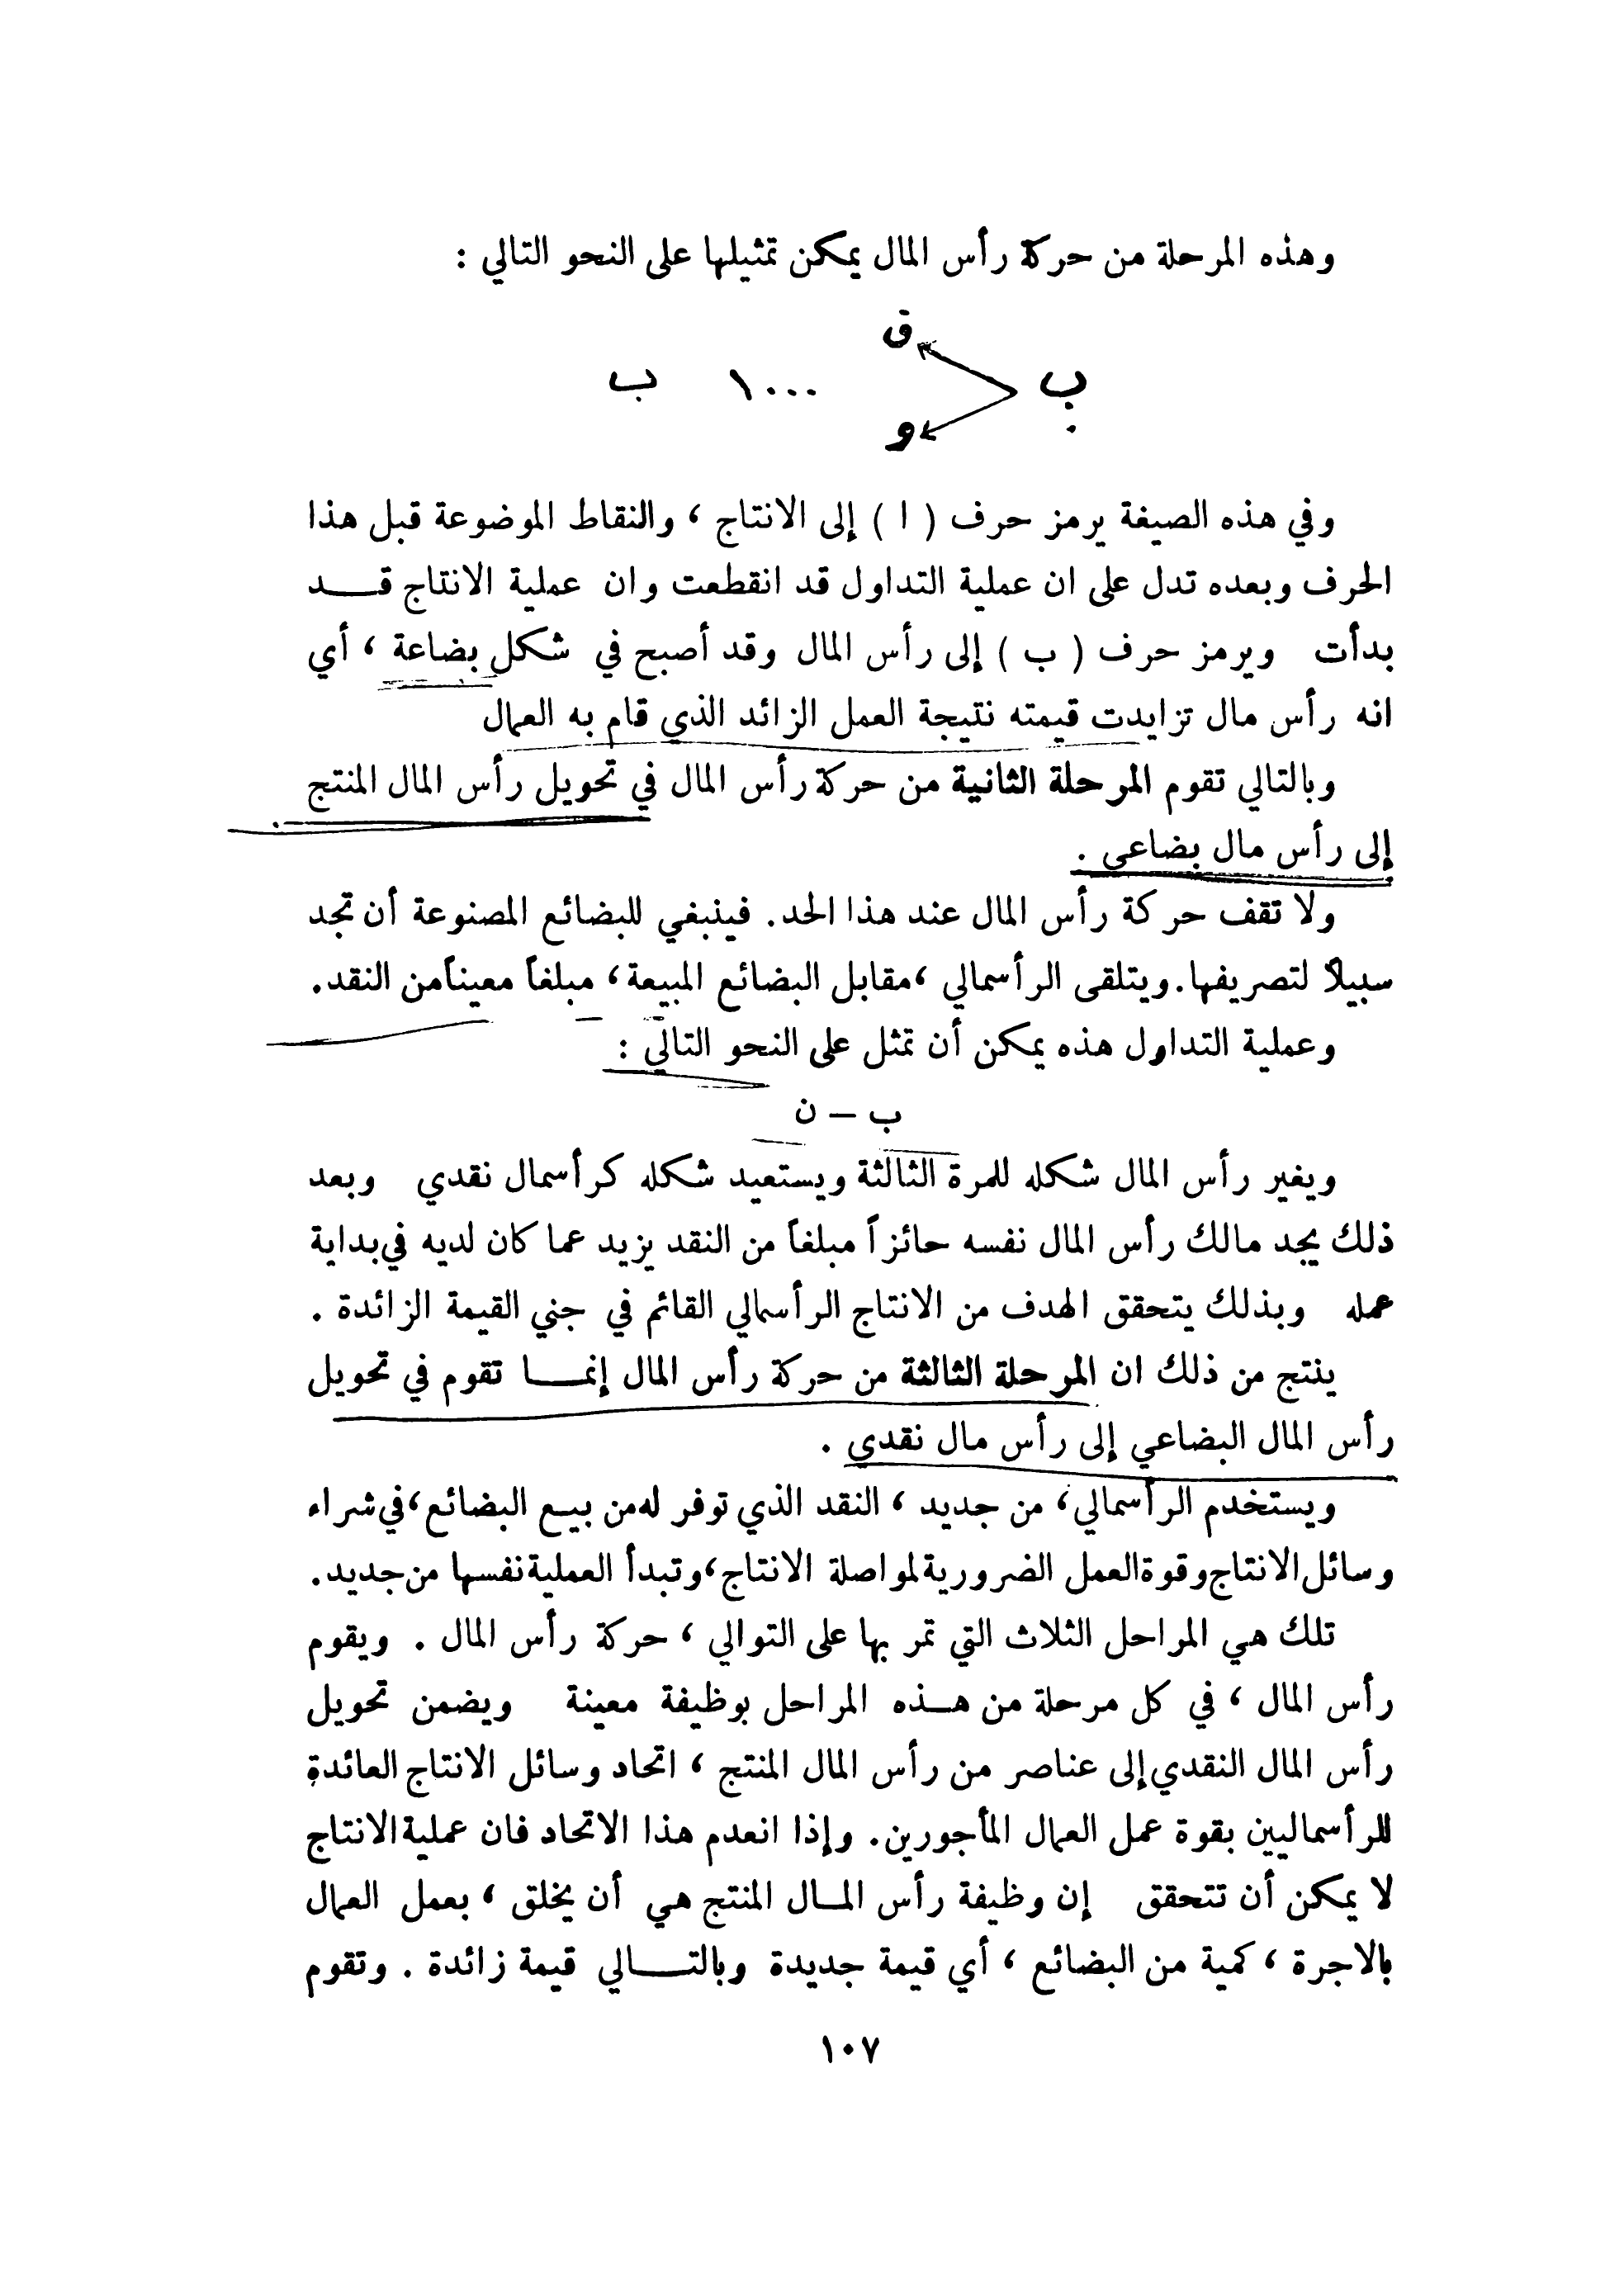 وهذه المرحلة من حركة رأس المال يمكن تمثيلها على النحو التالي :
ق
ب ...١ ب
و
وفي هذه الصيغة يرمز حرف ( ا ) إلى الانتاج ، والنقاط الموضوعة قبل هذا
الحرف وبعده تدل على ان عملية التداول قد انقطعت وان عملية الانتاج قــد
بدأت ويرمز حرف ( ب ) إلى رأس المال وقد أصبح في شكل بضاعة ، أي
انه رأس مال تزايدت قيمته نتيجة العمل الزائد الذي قام به العمال
وبالتالي تقوم المرحلة الثانية من حركة رأس المال في تحويل رأس المال المنتج
إلى رأس مال بضاعي .
ولا تقف حركة رأس المال عند هذا الحد. فينبغي للبضائع المصنوعة أن تجد
سبيلاً لتصريفها. ويتلقى الرأسمالي ،مقابل البضائع المبيعة، مبلغاً معيناً من النقد.
وعملية التداول هذه يمكن أن تمثل على النحو التالي :
ب – ن
ويغير رأس المال شكله للمرة الثالثة ويستعيد شكله كرأسمال نقدي وبعد
ذلك يجد مالك رأس المال نفسه حائزاً مبلغاً من النقد يزيد عما كان لديه في بداية
عمله وبذلك يتحقق الهدف من الانتاج الرأسمالي القائم في جني القيمة الزائدة .
ينتج من ذلك ان المرحلة الثالثة من حركة رأس المال إنمــا تقوم في تحويل
رأس المال البضاعي إلى رأس مال نقدي .
ويستخدم الرأسمالي، من جديد ، النقد الذي توفر له من بيـع البضائع، في شراء
وسائل الانتاج وقوة العمل الضرورية لمواصلة الانتاج، وتبدأ العملية نفسها من جديد.
تلك هي المراحل الثلاث التي تمر بها على التوالي ، حركة رأس المال . ويقوم
رأس المال ، في كل مرحلة من هــذه المراحل بوظيفة معينة ويضمن تحويل
رأس المال النقدي إلى عناصر من رأس المال المنتج ، اتحاد وسائل الانتاج العائدة
للرأسماليين بقوة عمل العمال المأجورين. وإذا انعدم هذا الاتحاد فان عملية الانتاج
لا يمكن أن تتحقق إن وظيفة رأس المــال المنتج هي أن يخلق ، بعمل العمال
بالاجرة ، كمية من البضائع ، أي قيمة جديدة وبالتــالي قيمة زائدة . وتقوم
١٠٧